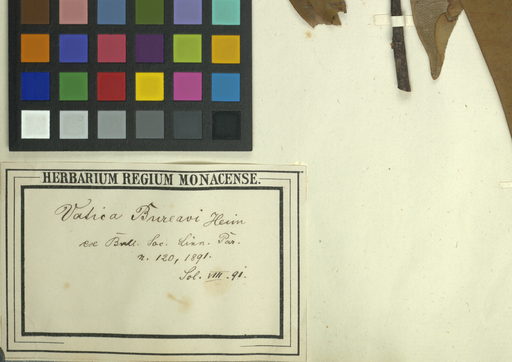 HERBARIUM REGIUM MONACENSE.
Vatica Bureavi Heim
ex Bull. Soc. Linn. Par.
n. 120, 1891.
Sol. VIII. 91.